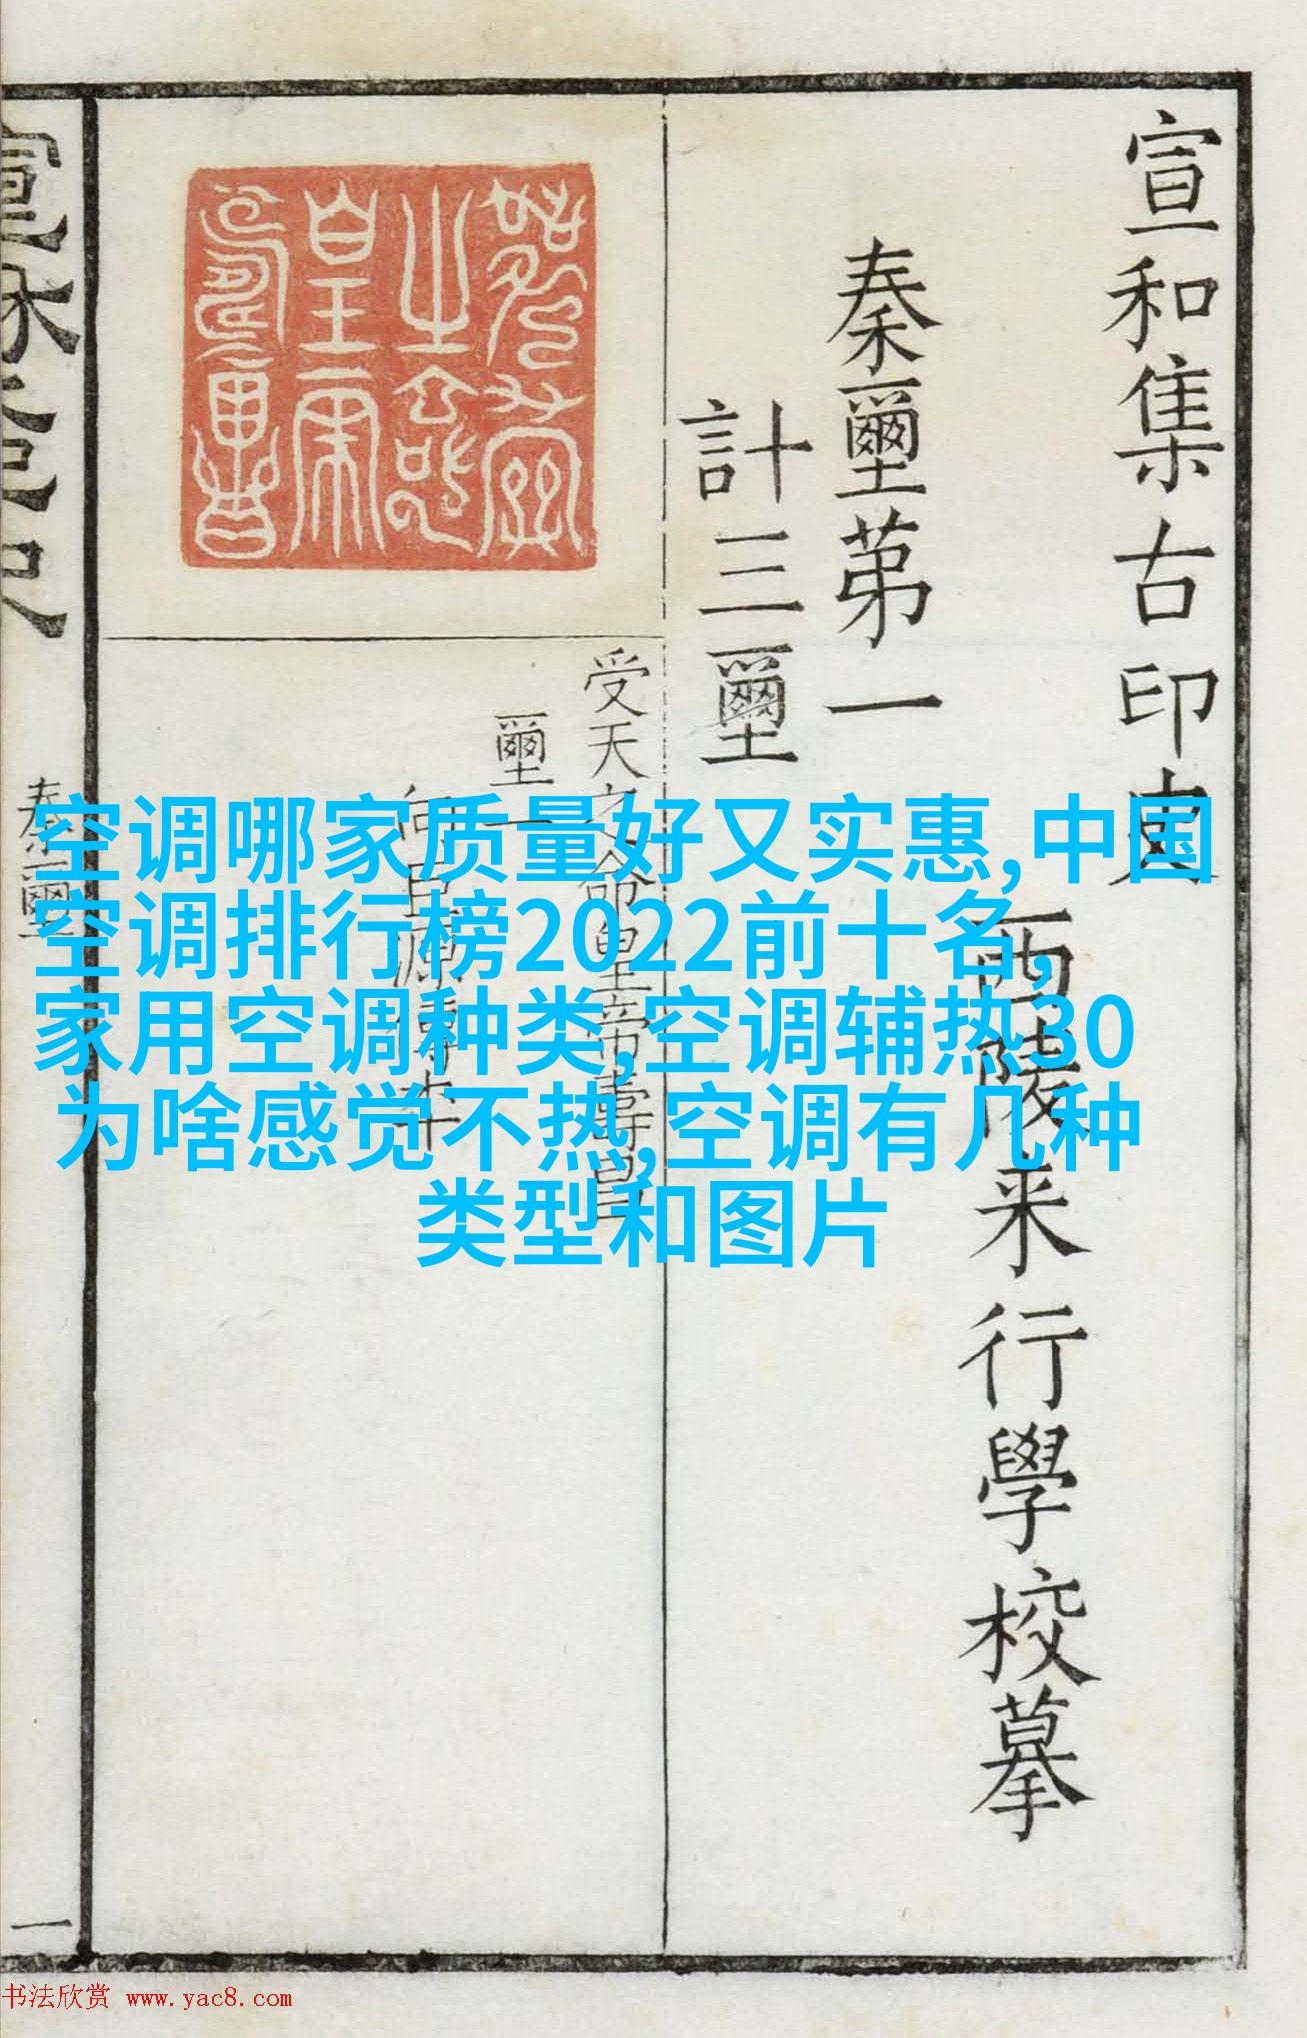 宣和集古印史
西陵来行學校摹
秦璽苐一
計三璽
受天之命皇帝壽昌
璽一
向巨源傳本
秦璽
一
空调哪家质量好又实惠,中国
空调排行榜2022前十名,
家用空调种类,空调辅热30
为啥感觉不热,空调有几种
类型和图片
书法欣赏 www.yac8.com